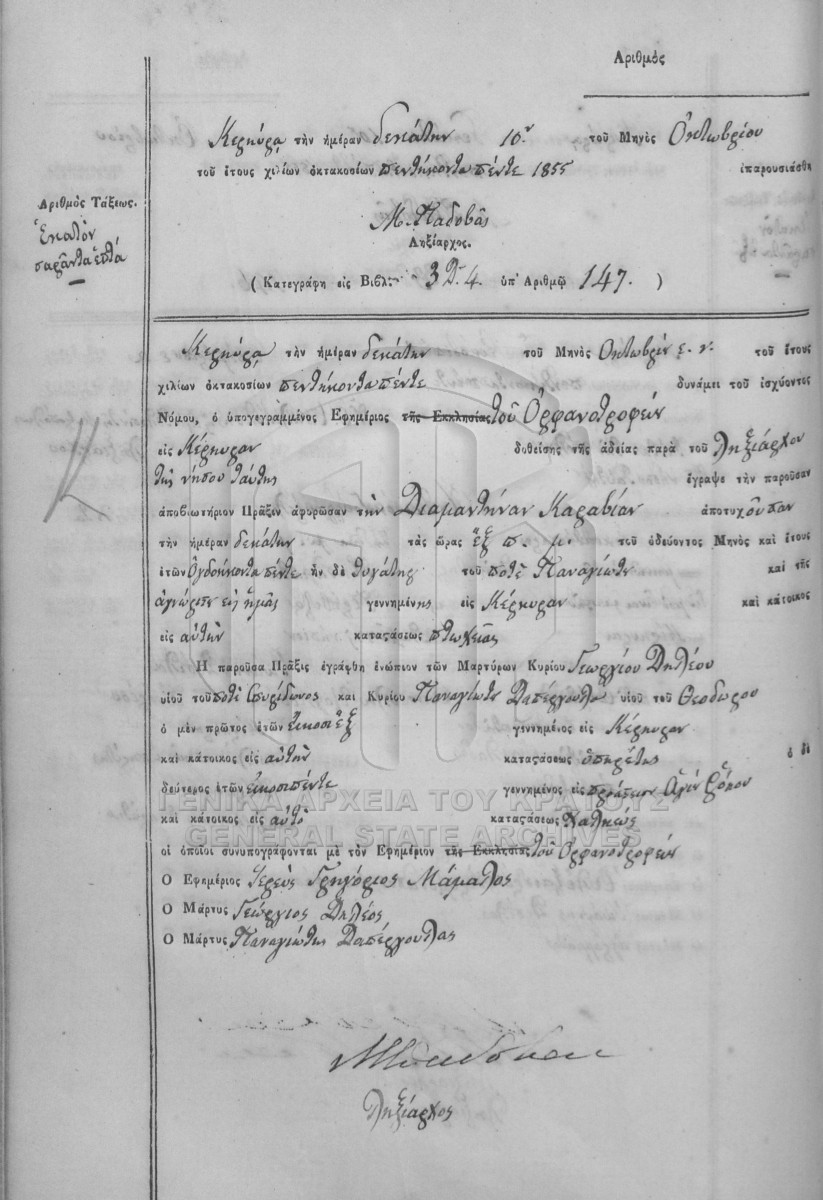 Αριθμός
Κερκύρᾳ τὴν ἡμέραν δεκάτην 10ν τοῦ Μηνὸς Ὀκτωβρίου
τοῦ ἔτους χιλίων ὀκτακοσίων πεντήκοντα πέντε 1855 ἐπαρουσιάσθη
Ἀριθμὸς Τάξεως.
Ἑκατὸν
σαράντα ἑπτά
Μ. Παδοβᾶς
Ληξίαρχος.
( Κατεγράφη εἰς Βιβλ: 3 Δ. 4. ὑπ' Αριθμῷ 147. )
Κερκύρᾳ τὴν ἡμέραν δεκάτην τοῦ Μηνὸς Οκτωβρίυ ε. ν. τοῦ ἔτους
χιλίων ὀκτακοσίων πεντήκοντα πέντε δυνάμει τοῦ ἰσχύοντος
Νόμου, ὁ ὑπογεγραμμένος Ἐφημέριος τῆς Ἐκκλησίας τοῦ Ὀρφανοτροφείυ
εἰς Κέρκυραν δοθείσης τῆς ἀδείας παρὰ τοῦ Ληξιάρχου
τῆς νήσου ταύτης ἔγραψε τὴν παροῦσαν
ἀποβιωτήριον Πρᾶξιν ἀφορῶσαν τὴν Διαμαντήναν Καραβίαν ἀποτυχοῦσαν
τὴν ἡμέραν δεκάτην τὰς ὥρας ἓξ π. μ. τοῦ ὁδεύοντος Μηνὸς καὶ ἔτους
ἐτῶν Ογδοήκοντα πέντε ἦν δὲ θυγάτηρ τοῦ ποτὲ Παναγιώτυ καὶ τῆς
ἀγνώριστυ εἰς ἡμᾶς γεννημένης εἰς Κέρκυραν καὶ κάτοικος
εἰς αὐτὴν καταστάσεως πτωχείας
Η παροῦσα Πρᾶξις ἐγράφθη ἐνώπιον τῶν Μαρτύρων Κυρίου Γεωργίου Δηλέου
υἱοῦ τοῦ ποτὲ Σπυρίδωνος καὶ Κυρίου Παναγιώτυ Δαπέργουλα υἱοῦ τοῦ Θεοδώρου
ὁ μὲν πρῶτος ἐτῶν Εἴκοσι ἓξ γεννημένος εἰς Κέρκυραν
καὶ κάτοικος εἰς αὐτὴν καταστάσεως ὑπηρέτης ὁ δὲ
δεύτερος ἐτῶν εἴκοσι πέντε γεννημένος εἰς προάστειον Ἁγίυ Ῥόκου
καὶ κάτοικος εἰς αὐτὸ καταστάσεως
οἱ ὁποῖοι συνυπογράφονται μὲ τὸν Ἐφημέριον τῆς Ἐκκλησίας τοῦ Ὀρφανοτροφείυ
Ο Ἐφημέριος Ἱερεὺς Γρηγόριος Μάμαλος
Ο Μάρτυς Γεώργιος Δηλέος
Ο Μάρτυς Παναγιώτης Δαπέργουλας
Ληξίαρχος
ΓΕΝΙΚΑ ΑΡΧΕΙΑ ΤΟΥ ΚΡΑΤΟΥΣ
GENERAL STATE ARCHIVES